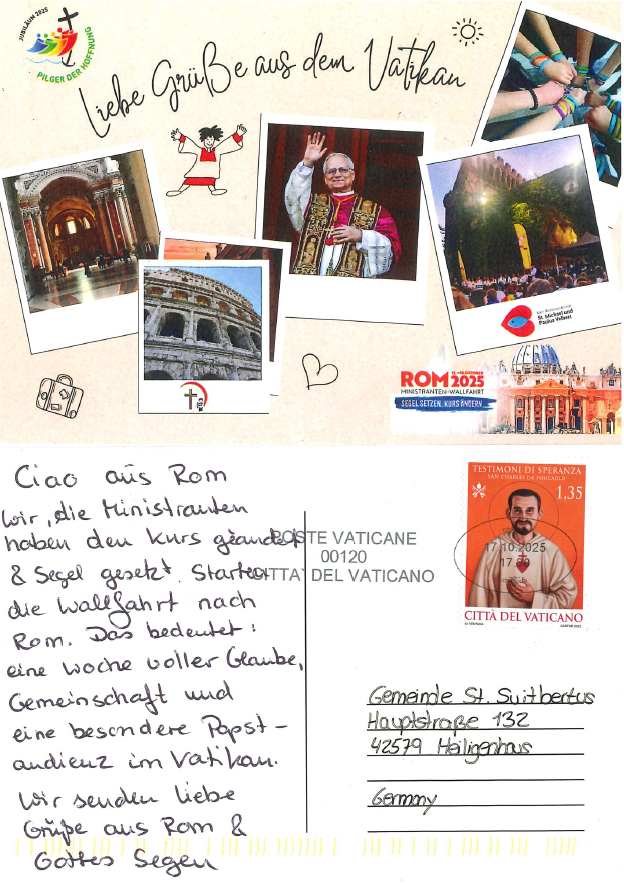 JUBILÄUM 2025
PILGER DER HOFFNUNG
Liebe Grüße aus dem Vatikan
St. Michael und
Paulus Velbert
ROM 2025
MINISTRANTEN-WALLFAHRT
SEGEL SETZEN, KURS ÄNDERN
Ciao aus Rom
wir, die Ministranten
haben den Kurs geändert
& Segel gesetzt. Starten
die Wallfahrt nach
Rom. Das bedeutet:
eine Woche voller Glaube,
Gemeinschaft und
eine besondere Papst-
audienz im Vatikan.
Wir senden liebe
Grüße aus Rom &
Gottes Segen
POSTE VATICANE
00120
CITTA' DEL VATICANO
TESTIMONI DI SPERANZA
SAN CHARLES DE FOUCAULD
1,35
17.10.2025
CITTÀ DEL VATICANO
Gemeinde St. Suitbertus
Hauptstraße 132
42579 Heiligenhaus
Germany